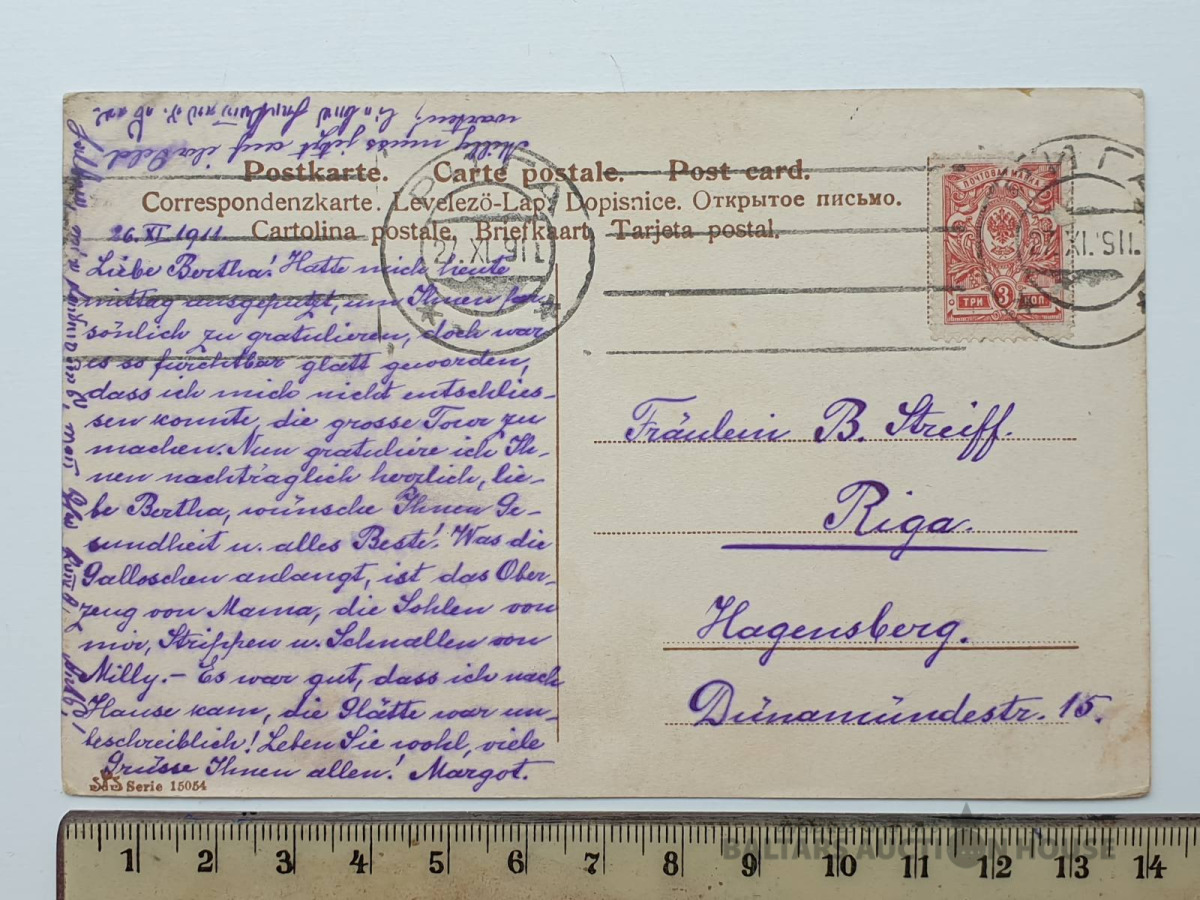 Postkarte. Carte postale. Post card.
Correspondenzkarte. Levelező-Lap. Dopisnice. Открытое письмо.
Cartolina postale. Briefkaart. Tarjeta postal.
26. XI 1911
Liebe Bertha! Hatte mich heute
mittag ausgeputzt, um Ihnen per-
sönlich zu gratulieren, doch war
es so furchtbar glatt geworden,
dass ich mich nicht entschlies-
sen konnte, die grosse Tour zu
machen. Nun gratuliere ich Ih-
nen nachträglich herzlich, lie-
be Bertha, wünsche Ihnen Ge-
sundheit u. alles Beste! Was die
Galloschen anlangt, ist das Ober-
zeug von Mama, die Sohlen von
mir, Strippen u. Schnallen von
Milly.- Es war gut, dass ich nach
Hause kam, die Glätte war un-
beschreiblich! Leben Sie wohl, viele
Grüsse Ihnen allen! Margot.
Milly muss jetzt auf der
warten,
РИГА
27. XI. 911.
РИГА
XI. 911.
ПОЧТОВАЯ МАРКА
ТРИ 3 КОП
Fräulein B. Streiff.
Riga.
Hagensberg.
Dünamündestr. 15.
Serie 15054
1 2 3 4 5 6 7 8 9 10 11 12 13 14
BALTARS AUCTION HOUSE